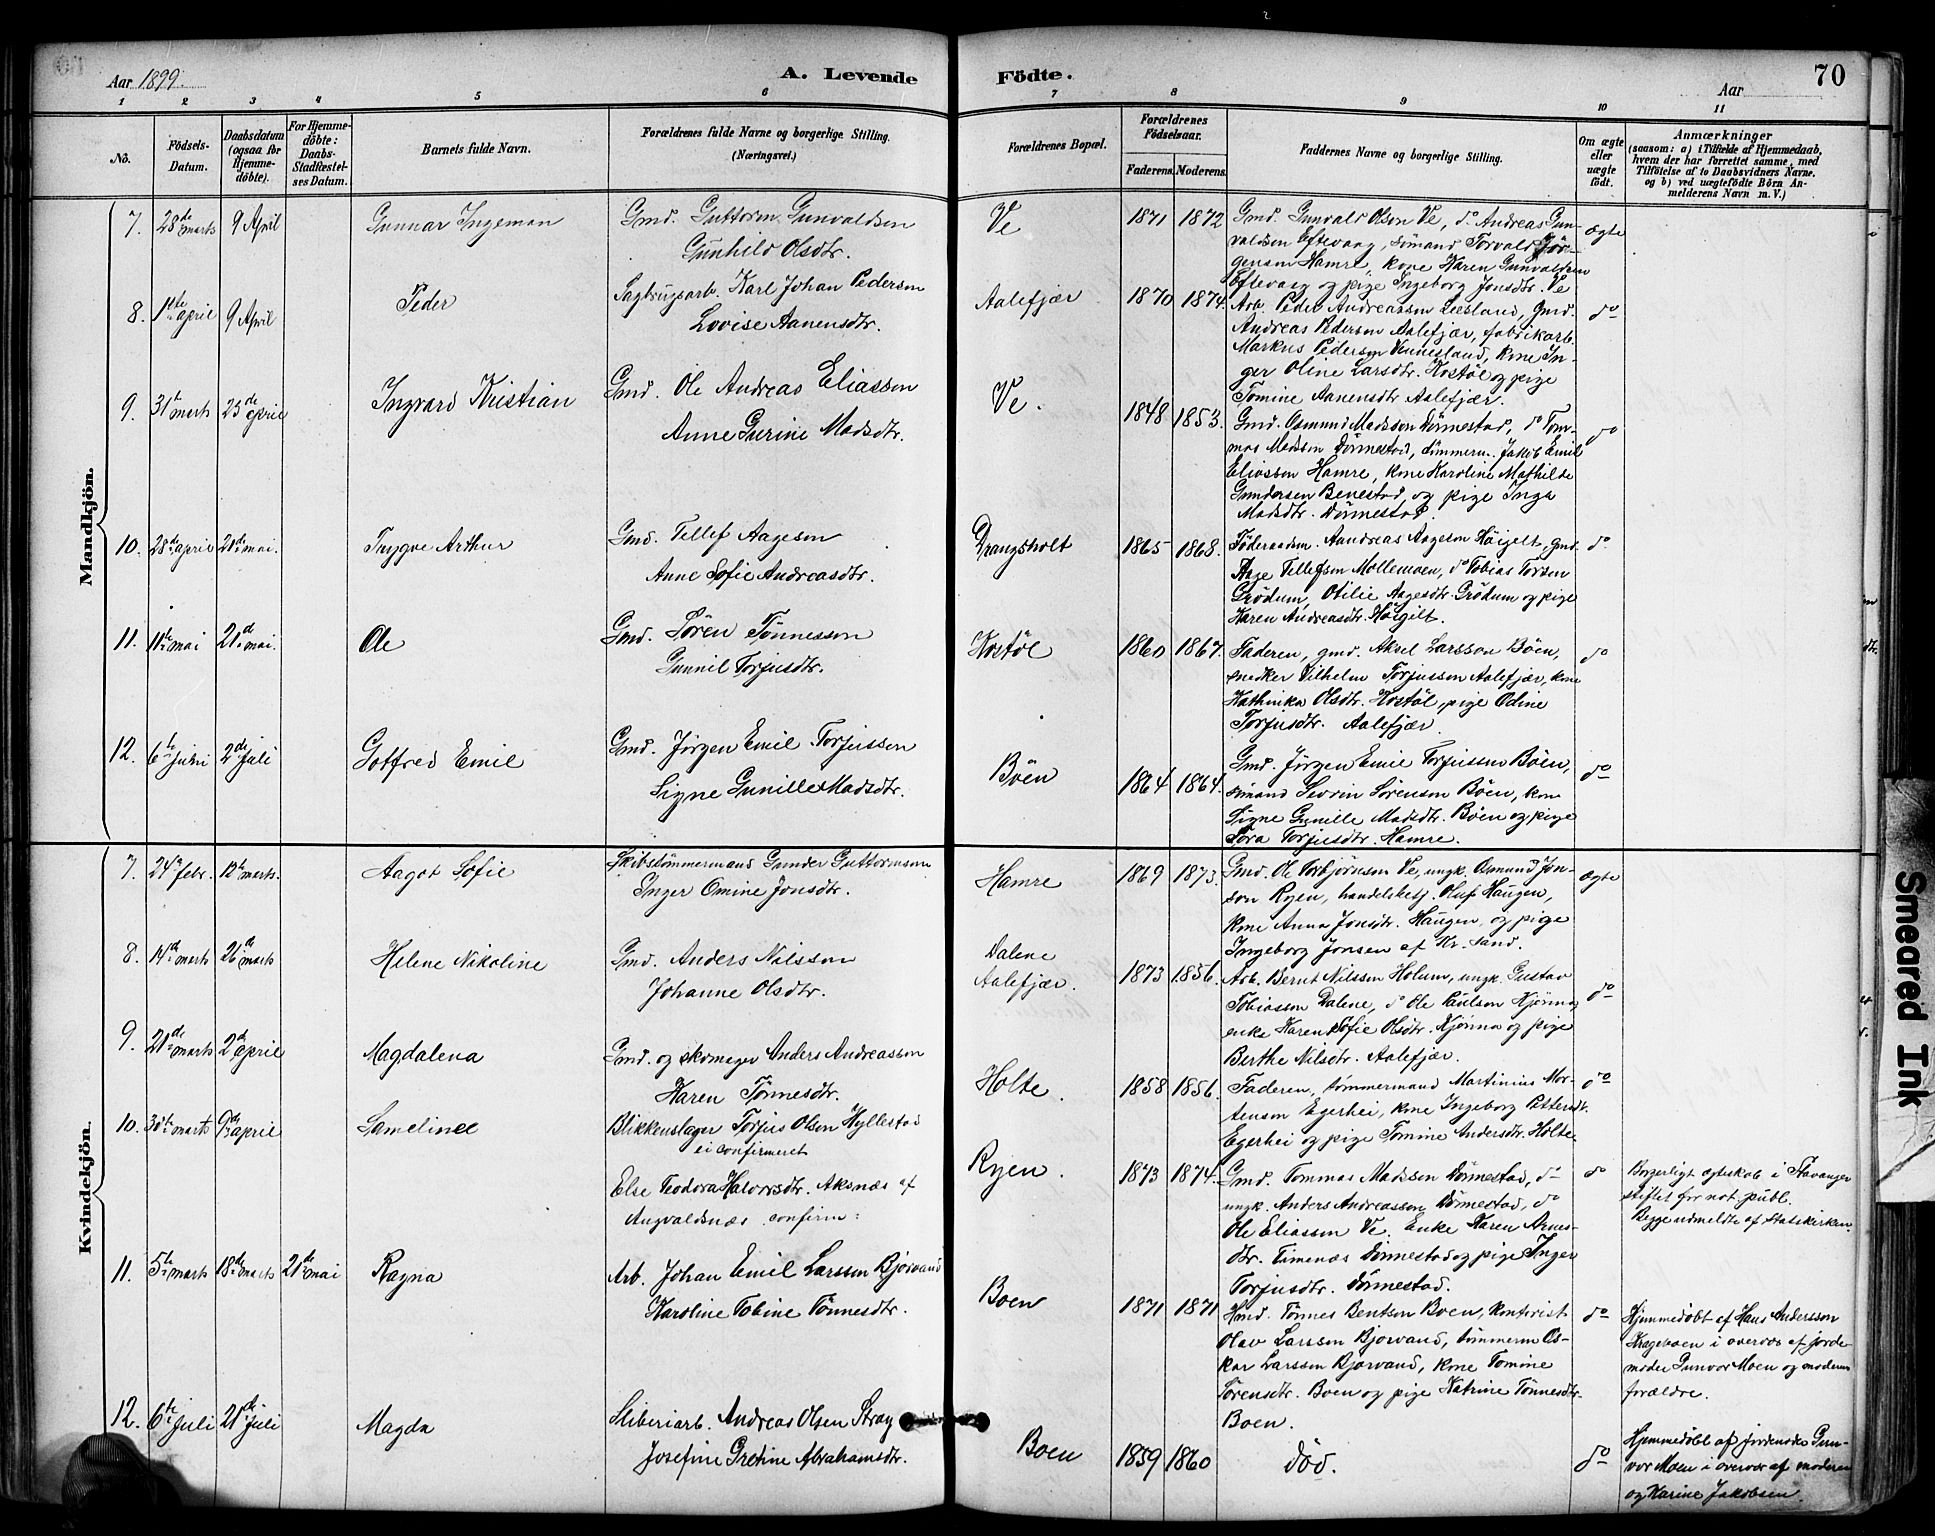 Aar 1899.
A. Levende
Födte.
Aar
70
1 2 3 4 5 6 7 8 9 10 11
No.
Födsels-
Datum.
Daabsdatum
(ogsaa for
Hjemme-
döbte).
For Hjemme-
döbte:
Daabs-
Stadfæstel-
ses Datum.
Barnets fulde Navn.
Forældrenes fulde Navne og borgerlige Stilling.
(Næringsvei.)
Forældrenes Bopæl.
Forældrenes
Födselsaar.
Faderens. Moderens.
Faddernes Navne og borgerlige Stilling.
Om ægte
eller
uægte
födt.
Anmærkninger
(saasom: a) i Tilfælde af Hjemmedaab,
hvem der har forrettet samme, med
Tilföielse af to Daabsvidners Navne,
og b) ved uægtefödte Börn An-
melderens Navn m. V.)
Mandkjön.
7. 28de marts 9 April
Gunnar Ingeman
Gmd. Guttorm Gunvaldsen
Gunhild Olsdtr.
Ve
1871 1872
Gmd. Gunvald Olson Ve, do Andreas Gun-
valdsen Eftevaag, sömand Torvald Jör-
gensen Hamre, kone Karen Gunvaldsen
Eftevaag og pige Ingeborg Jonsdtr. Ve
ægte
8. 1ste april 9 April
Peder
Sagbrugsarb. Karl Johan Pederson
Lovise Aanensdtr.
Aalefjær
1870 1874.
Arb. Peder Andreasson Leesland, Gmd.
Andreas Pederson Aalefjær, fabrikarb.
Markus Pederson Vennesland, kone In-
ger Oline Larsdtr. Kostöl og pige
Tomine Aanensdtr Aalefjær.
do
9. 31te marts 23de april
Ingvard Kristian
Gmd. Ole Andreas Eliasson
Anne Gurine Madsdtr.
Ve.
1848 1853.
Gmd. Osmund Madsson Dönnestad, do Tom-
mas Madsson Dönnestad, tömmerm. Jakob Emil
Eliasson Hamre, kone Karoline Mathilde
Gundersen Benestad, og pige Inga
Madsdtr. Dönnestad.
do
10. 28de april 21de mai.
Trygve Arthur
Gmd. Tellef Aageson
Anne Sofie Andreasdtr.
Drangsholt
1865 1868.
Föderaadsm. Aandreas Aageson Höigilt, gmd.
Aage Tellefsen Mollemoen, do Tobias Torsen
Grödum, Otilie Aagesdtr. Grödum og pige
Karen Andreasdtr. Höigilt.
do
11. 11te mai 21de mai.
Ole
Gmd. Sören Tönnesson
Gunnil Torjusdtr.
Kostöl
1860 1867.
Faderen, gmd. Aksel Larsson Böen,
snedker Vilhelm Torjusson Aalefjær, kone
Kathinka Olsdtr. Kostöl, pige Odine
Torjusdtr. Aalefjær.
do
12. 6te juni 2de juli
Gotfred Emil
Gmd. Jörgen Emil Torjusson
Signe Gunille Madsdtr.
Böen
1864 1864.
Gmd. Jörgen Emil Torjusson Böen,
sömand Sevrin Sörenson Böen, kone
Signe Gunille Madsdtr. Böen og pige
Tora Torjusdtr. Hamre.
do
Kvindekjön.
7. 24de febr. 12te marts.
Aagot Sofie
Skibstömmermand Gunder Guttormson
Inger Omine Jonsdtr.
Hamre
1869 1873.
Gmd. Ole Torbjörnson Ve, ungk. Osmund Jon-
son Ryen, handelsbetj. Oluf Haugen,
kone Anna Jonsdtr. Haugen, og pige
Ingeborg Jonsen af Kr. sand.
ægte
8. 14de marts 26de marts
Helene Nikoline
Gmd. Anders Nilsson
Johanne Olsdtr.
Dalene
Aalefjær.
1873 1856.
Arb. Bernt Nilssen Holum, ungk. Gustav
Tobiassen Dalene, do Ole Paulson Kjönna,
enke Karen Sofie Olsdtr. Kjönna og pige
Berthe Nilsdtr. Aalefjær.
do
9. 21de marts 2de april
Magdalena
Gmd. og skomager Anders Andreasson
Karen Tönnesdtr.
Holte
1858 1856.
Faderen, tömmermand Martinius Mor-
tenson Egerhei, kone Ingeborg Pettersdtr.
Egerhei og pige Tomine Andersdtr. Holte
do
10. 30te marts 9de april
Samelinee
Blikkenslager Torjus Olsen Hyllestad
ei confirmeret
Else Teodora Halvorsdtr. Aksnæs af
Augvaldsnæs confirm:
Ryen.
1873 1874.
Gmd. Tommas Madsson Dönnestad, do
ungk. Anders Andreasson Dönnestad, do
Ole Eliassen Ve. Enke Karen Arnes-
dtr. Timenæs Dönnestad og pige Inger
Torjusdtr. Dönnestad.
do
Borgerligt ægteskab i Stavanger
stiftet for not. publ.
Begge udmeldte af Statskirken.
11. 5te marts 18de marts 21de mai
Ragna
Arb. Johan Emil Larsson Bjorvand
Karoline Tobine Tönnesdtr.
Boen
1871 1871
Hmd. Tönnes Bentsen Boen, kontorist
Olav Larssen Bjorvand, tömmerm Os-
kar Larssen Bjorvand, kone Tomine
Sörensdtr. Boen og pige Katrine Tönnesdtr.
Boen.
do
Hjemmedöbt af Hans Andersson
Krageboen i overvær af jorde-
moder Gunvor Moen og moderens
forældre.
12. 6te juli 21de juli
Magda
Sliberiarb. Andreas Olsen Stray
Josefine Gretine Abrahamsdtr.
Boen
1859 1860
död.
do
Hjemmedöbt af jordemoder Gun-
vor Moen i overvær af moderen
og Karine Jakobsen.
Smeared Ink